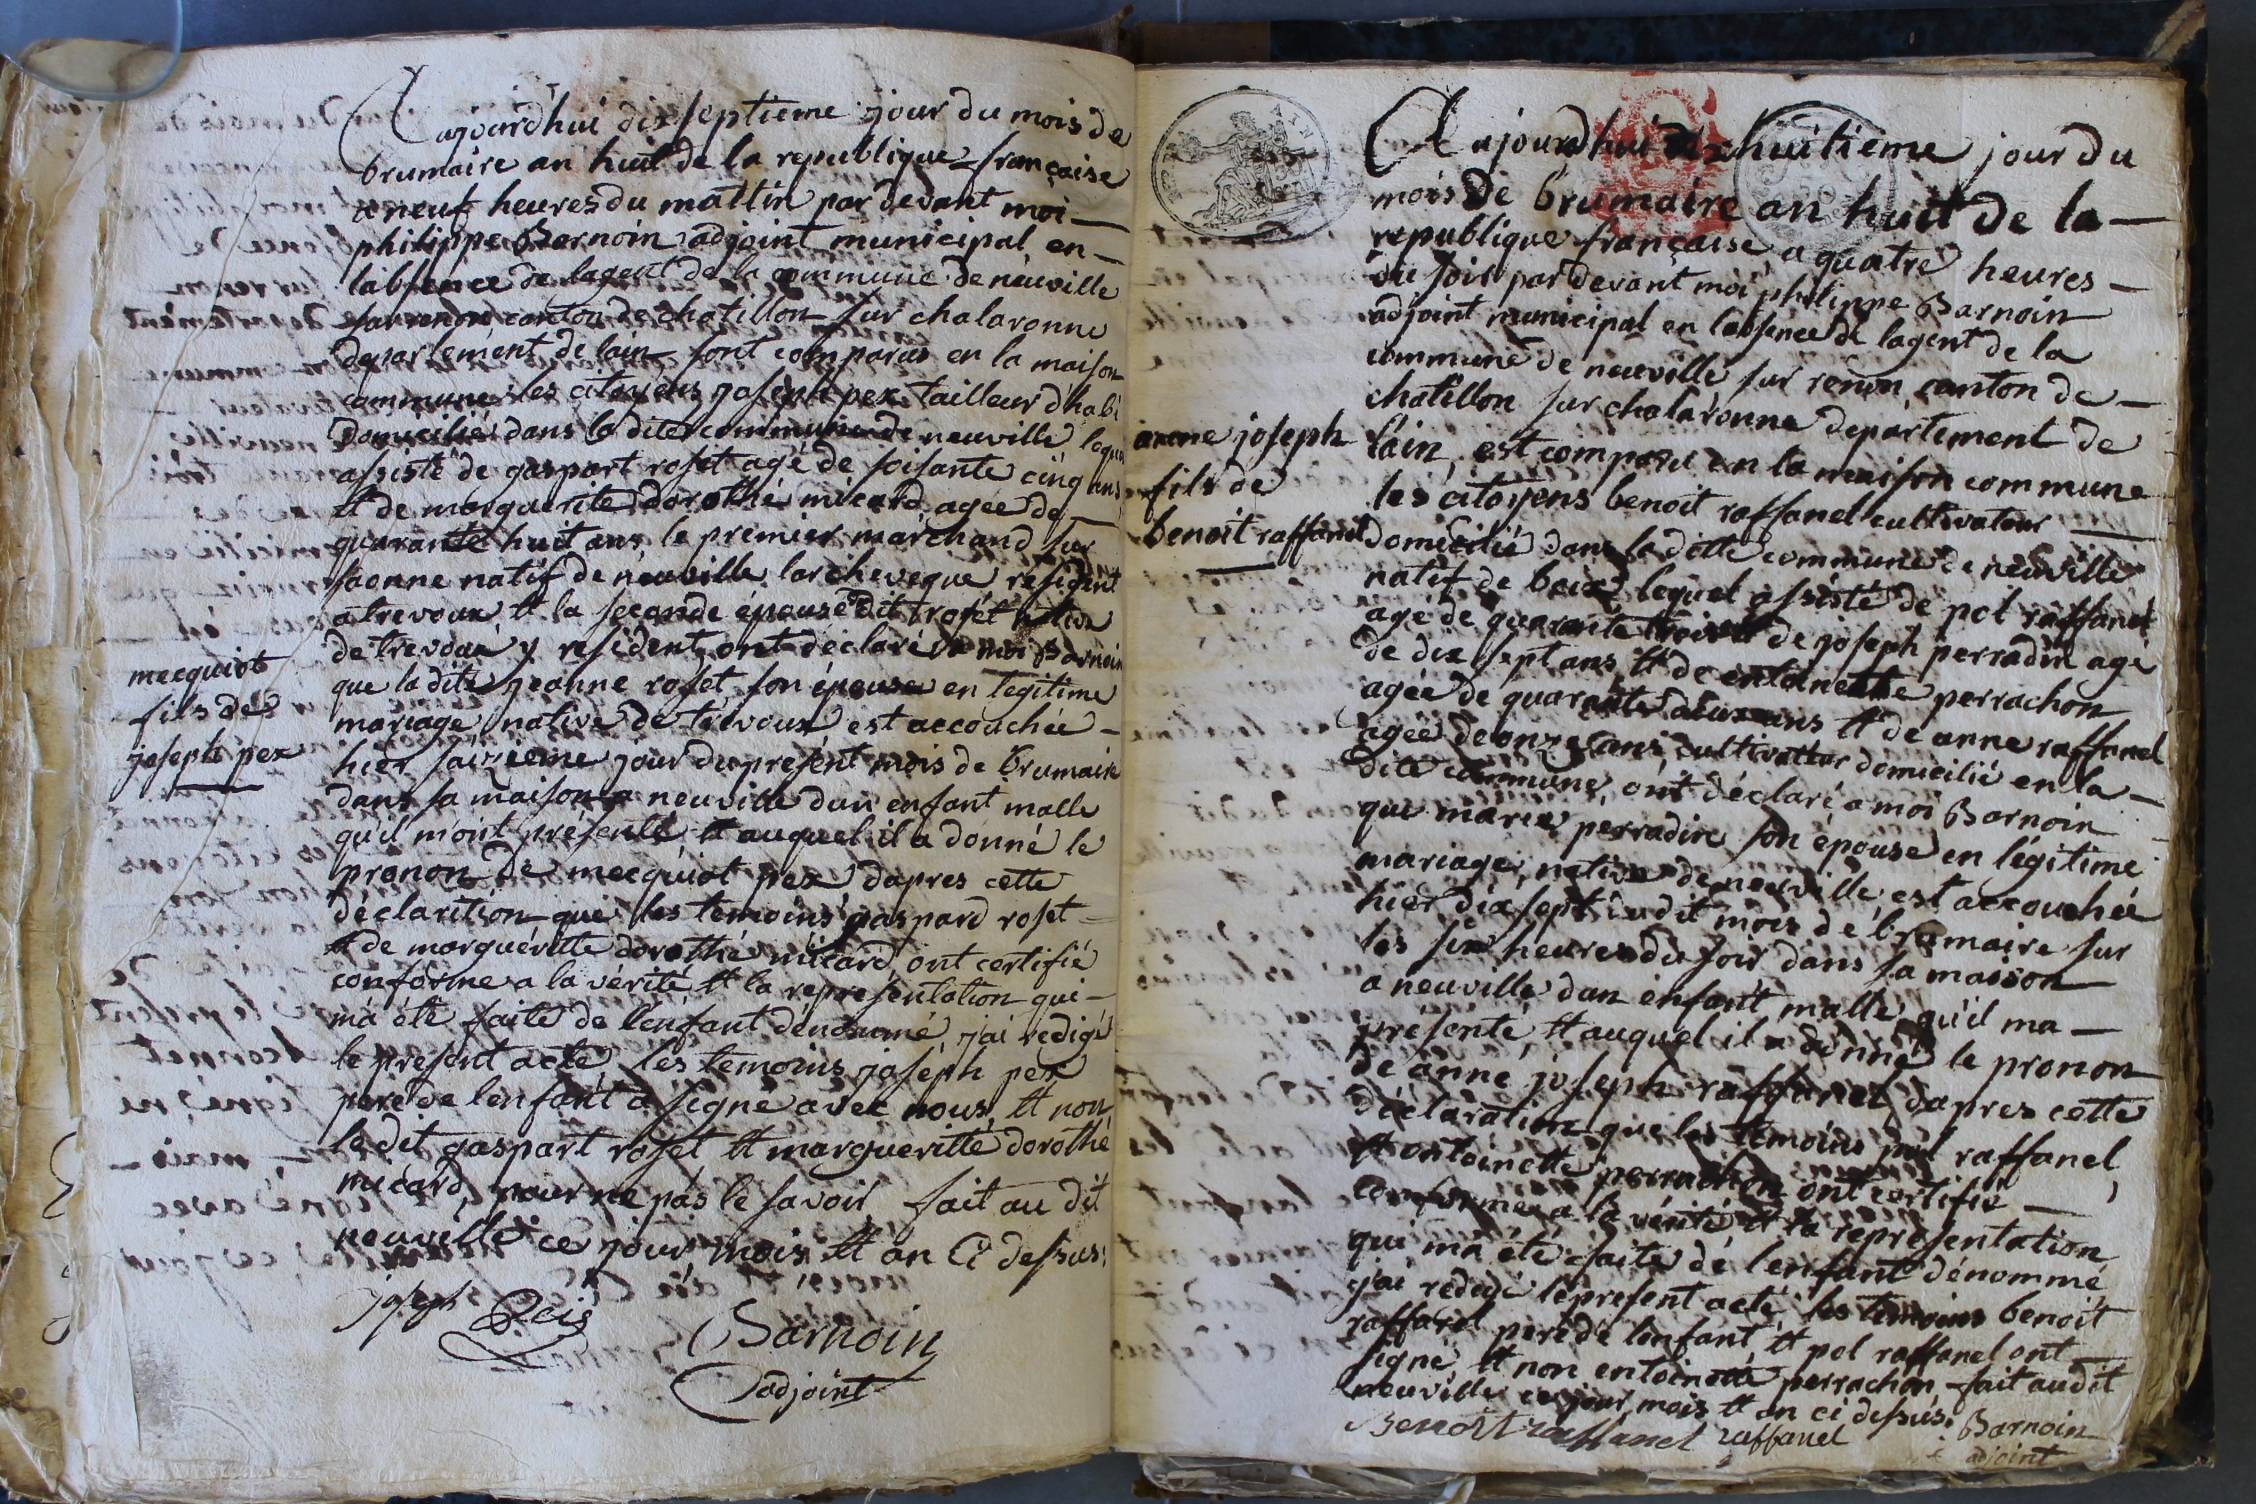 Aujourdhui dix septieme jour du mois de
brumaire an huit de la republique française
a neuf heures du mattin par devant moi
philippe Barnoin adjoint municipal en
labsence de lagent de la commune de neuville
sur renon canton de chatillon sur chalaronne
departement de lain sont comparus en la maison
commune les citoyens joseph pex tailleur d'habi
Domicilié dans la dite commune de neuville lequel
assisté de gaspart roset agé de soisante cinq ans
et de marguerite dorothé micard agée de
quarante huit ans, le premier marchand sur
saonne natif de neuville larcheveque resident
a trevoux et la seconde épouse dit roset native
de trevoux y resident, ont déclaré a moi Barnoin
que la dite jeanne roset son épouse en legitime
mariage native de trevoux est accouchée
hier saizieme jour du present mois de brumaire
dans sa maison a neuville dun enfant malle
qu'il m'ont présenté et auquel il a donné le
pronon de mecquiot pex dapres cette
déclarition que les temoins gaspard roset
et de marguéritte dorothé micard, ont certifié
conforme a la vérité et la representation qui
m'a été faite de l'enfant dénommé, j'ai redigé
le present acte, les temoins joseph pex
pere de lenfant a signé avec nous, et non
le dit gaspart roset et margueritte dorothé
micard, pour ne pas le savoir fait au dit
neuville ce jour mois et an Ci dessus.
joseph Peis
Barnoin
adjoint
mecquiot
fils de
joseph pex
Aujourdhui dix huitieme jour du
mois de brumaire an huit de la
republique française a quatre heures
du soir par devant moi philippe Barnoin
adjoint municipal en labsence de lagent de la
commune de neuville sur renon canton de
chatillon sur chalaronne departement de
l'ain, est comparu en la maison commune
les citoyens benoit raffanel cultivateur
domicilié dans la ditte commune de neuville
natif de lequel assisté de pol raffanel
agé de quarante trois et de joseph perradin agé
de dix sept ans, et de entoinette perrachon
agée de quarante deux ans et de anne raffanel
agée de onze ans, cultivatter domicilié en la
dite commune, ont déclaré a moi Barnoin
que marie perradin son épouse en légitime
mariage, native de neuville est accouchée
hier dix sept du dit mois de brumaire sur
les six heures du soir dans sa maison
a neuville dun enfant malle qu'il ma
présenté et auquel il a donné le pronon
de anne joseph raffanel dapres cette
déclaration que les temoins pol raffanel
et entoinette perrachon ont certifié
conforme a la vérité et la representation
qui ma été faite de l'enfant dénommé
j'ai redigé le present acte les temoins benoit
raffanel pere de lenfant, et pol raffanel ont
signé et non entoinette perrachon fait au dit
neuville ce jour, mois et an ci dessus.
Benoit raffanel raffanel Barnoin
adjoint
anne joseph
fils de
benoit raffanel